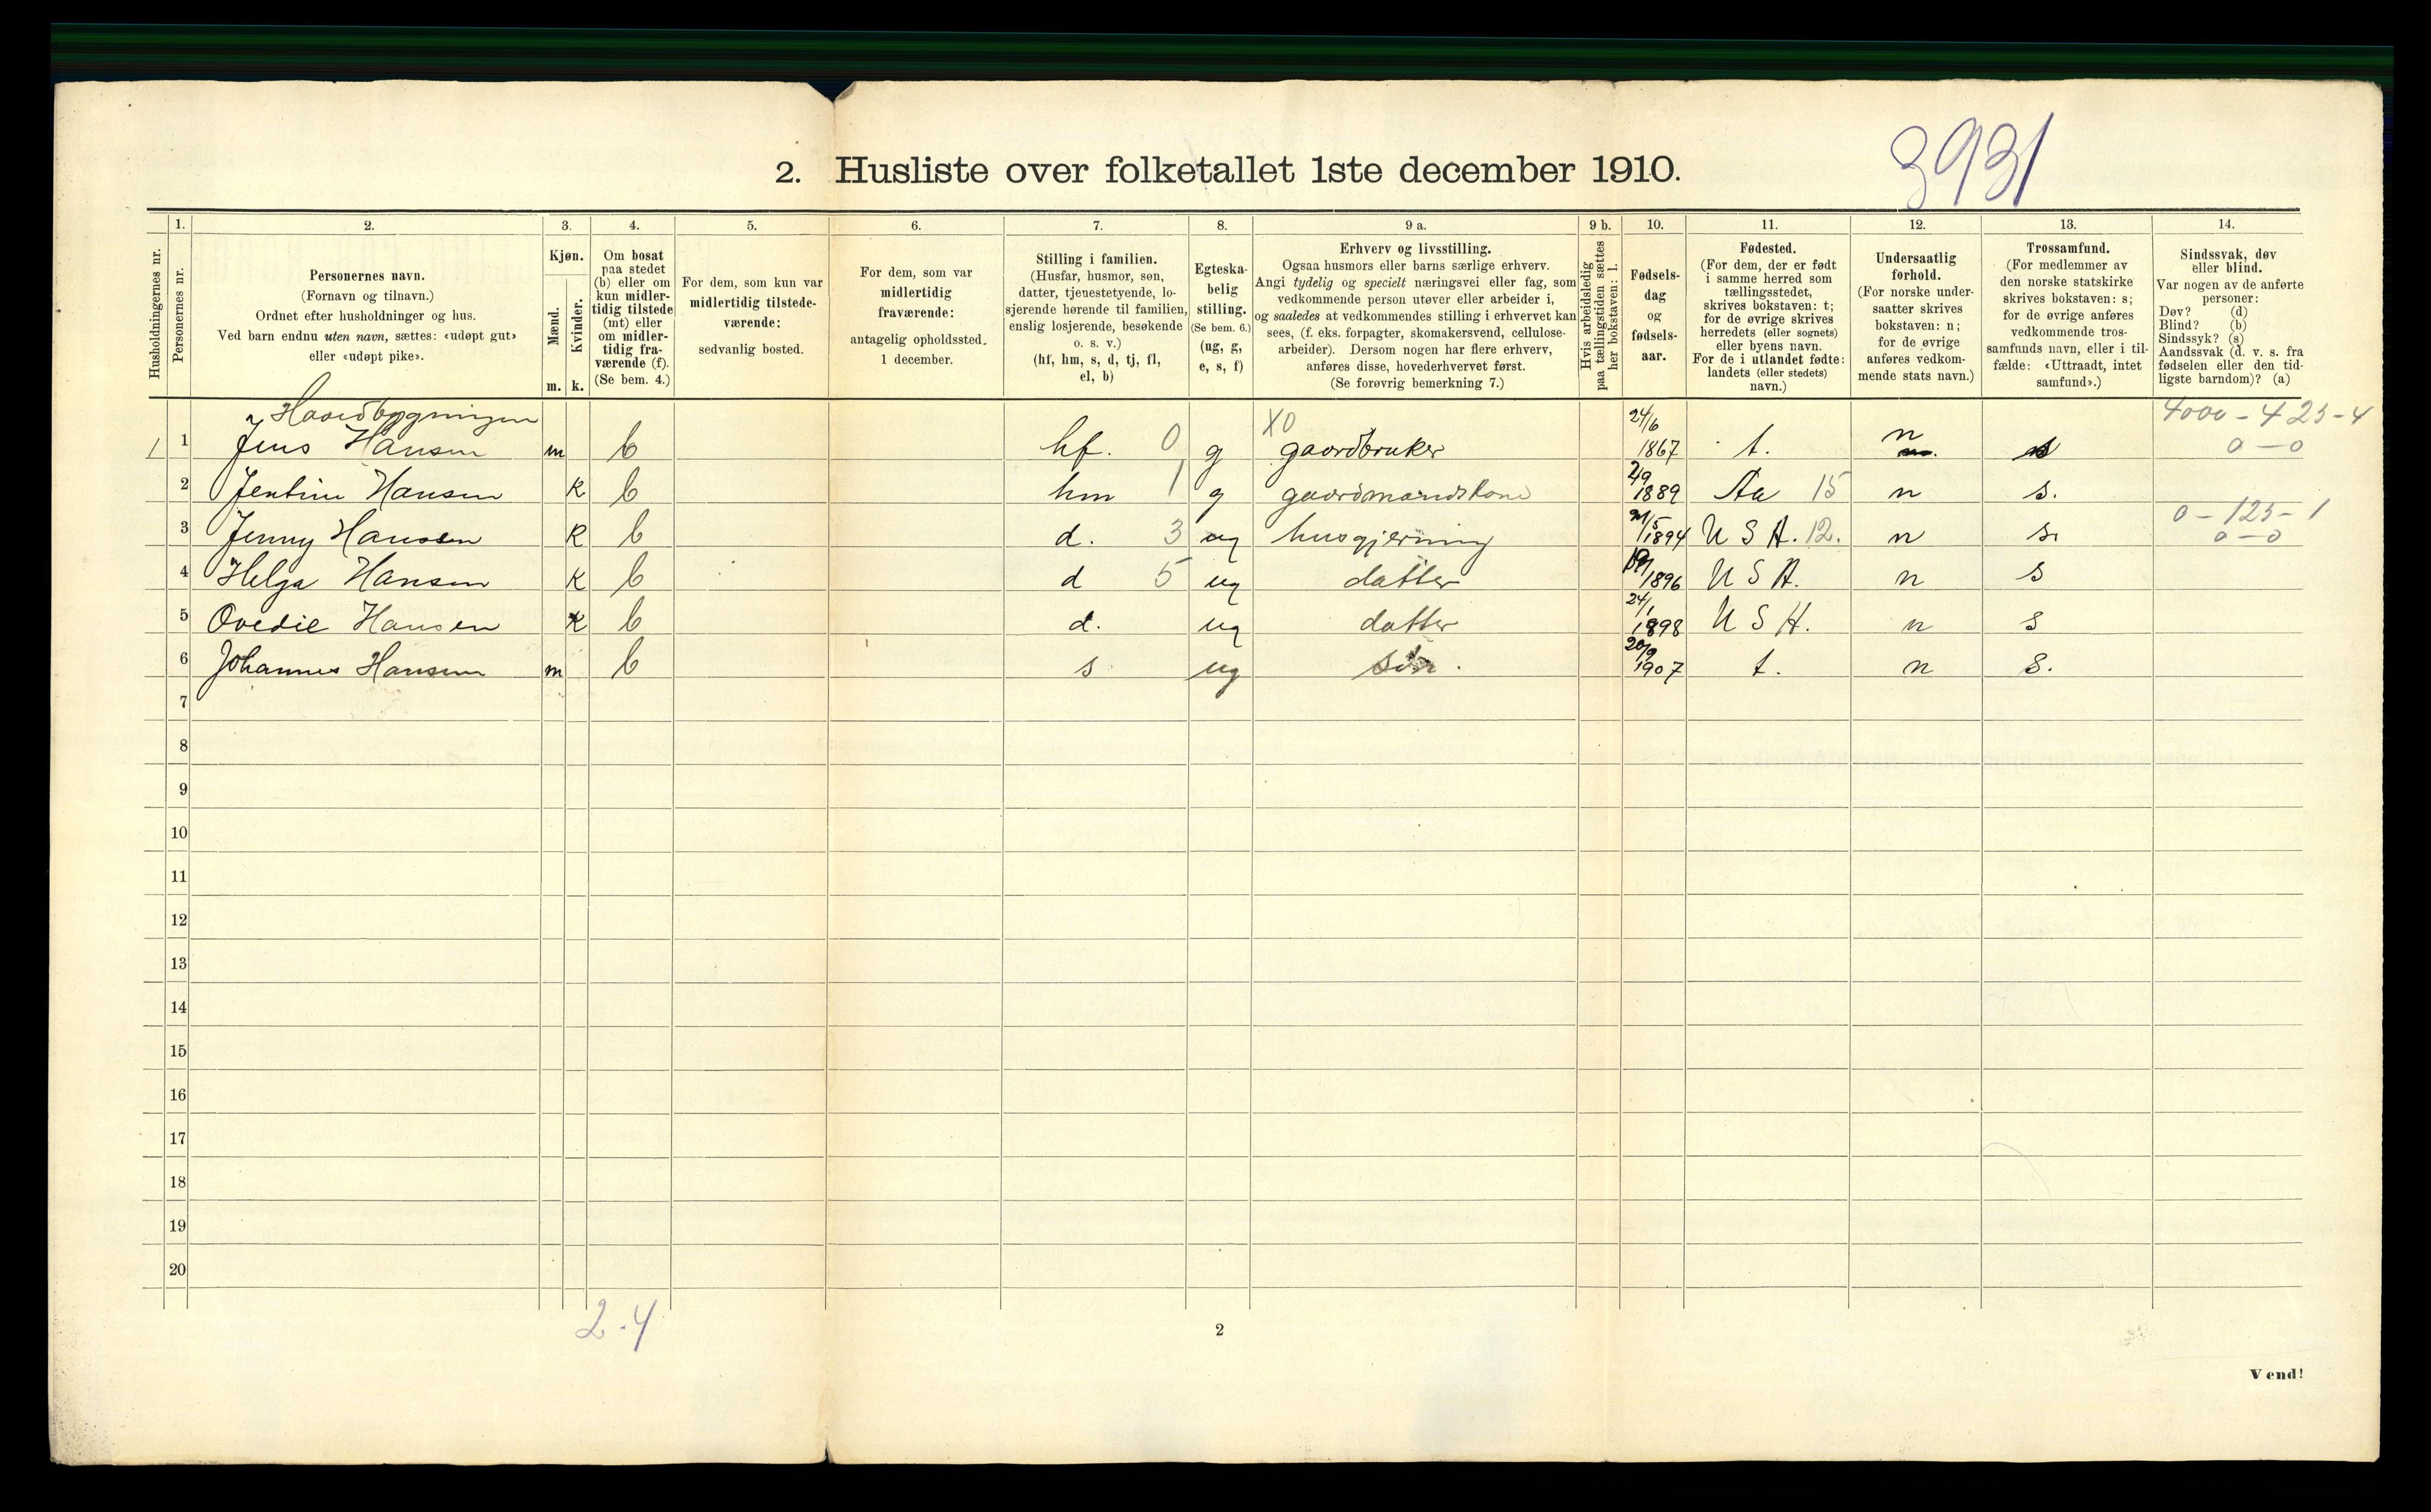 3931
2. Husliste over folketallet 1ste december 1910.
Husholdningernes nr.
1.
Personernes nr.
2.
Personernes navn.
(Fornavn og tilnavn.)
Ordnet efter husholdninger og hus.
Ved barn endnu uten navn, sættes: «udøpt gut»
eller «udøpt pike».
3.
Kjøn.
Mænd.
Kvinder.
m. k.
4.
Om bosat
paa stedet
(b) eller om
kun midler-
tidig tilstede
(mt) eller
om midler-
tidig fra-
værende (f).
(Se bem. 4.)
5.
For dem, som kun var
midlertidig tilstede-
værende:
sedvanlig bosted.
6.
For dem, som var
midlertidig
fraværende:
antagelig opholdssted
1 december.
7.
Stilling i familien.
(Husfar, husmor, søn,
datter, tjenestetyende, lo-
sjerende hørende til familien,
enslig losjerende, besøkende
o. s. v.)
(hf, hm, s, d, tj, fl,
el, b)
8.
Egteska-
belig
stilling.
(Se bem. 6.)
(ug, g,
e, s, f)
9 a.
Erhverv og livsstilling.
Ogsaa husmors eller barns særlige erhverv.
Angi tydelig og specielt næringsvei eller fag, som
vedkommende person utøver eller arbeider i,
og saaledes at vedkommendes stilling i erhvervet kan
sees, (f. eks. forpagter, skomakersvend, cellulose-
arbeider). Dersom nogen har flere erhverv,
anføres disse, hovederhvervet først.
(Se forøvrig bemerkning 7.)
9 b.
Hvis arbeidsledig
paa tællingstiden sættes
her bokstaven: l.
10.
Fødsels-
dag
og
fødsels-
aar.
11.
Fødested.
(For dem, der er født
i samme herred som
tællingsstedet,
skrives bokstaven: t;
for de øvrige skrives
herredets (eller sognets)
eller byens navn.
For de i utlandet fødte:
landets (eller stedets)
navn.)
12.
Undersaatlig
forhold.
(For norske under-
saatter skrives
bokstaven: n;
for de øvrige
anføres vedkom-
mende stats navn.)
13.
Trossamfund.
(For medlemmer av
den norske statskirke
skrives bokstaven: s;
for de øvrige anføres
vedkommende tros-
samfunds navn, eller i til-
fælde: «Uttraadt, intet
samfund».)
14.
Sindssvak, døv
eller blind.
Var nogen av de anførte
personer:
Døv? (d)
Blind? (b)
Sindssyk? (s)
Aandssvak (d. v. s. fra
fødselen eller den tid-
ligste barndom)? (a)
Hovedbygningen 4000 - 425 - 4
1 1 Jens Hansen m b hf. 0 g X0 gaardbruker 24/6 1867 t. n s 0 - 0
2 Jentine Hansen k b hm 1 g gaardmandskone 2/9 1889 Aa 15 n s.
3 Jenny Hansen k b d. 3 ug husgjerning 21/5 1894 U S A. 12. n s. 0 - 125 - 1 0 - 0
4 Helga Hansen k b d 5 ug datter 1896 U S A. n s
5 Ovedie Hansen k b d. ug datter 24/1 1898 U S A. n s
6 Johannes Hansen m b s ug søn. 20/9 1907 t. n s.
7
8
9
10
11
12
13
14
15
16
17
18
19
20
2 . 4
2
Vend!